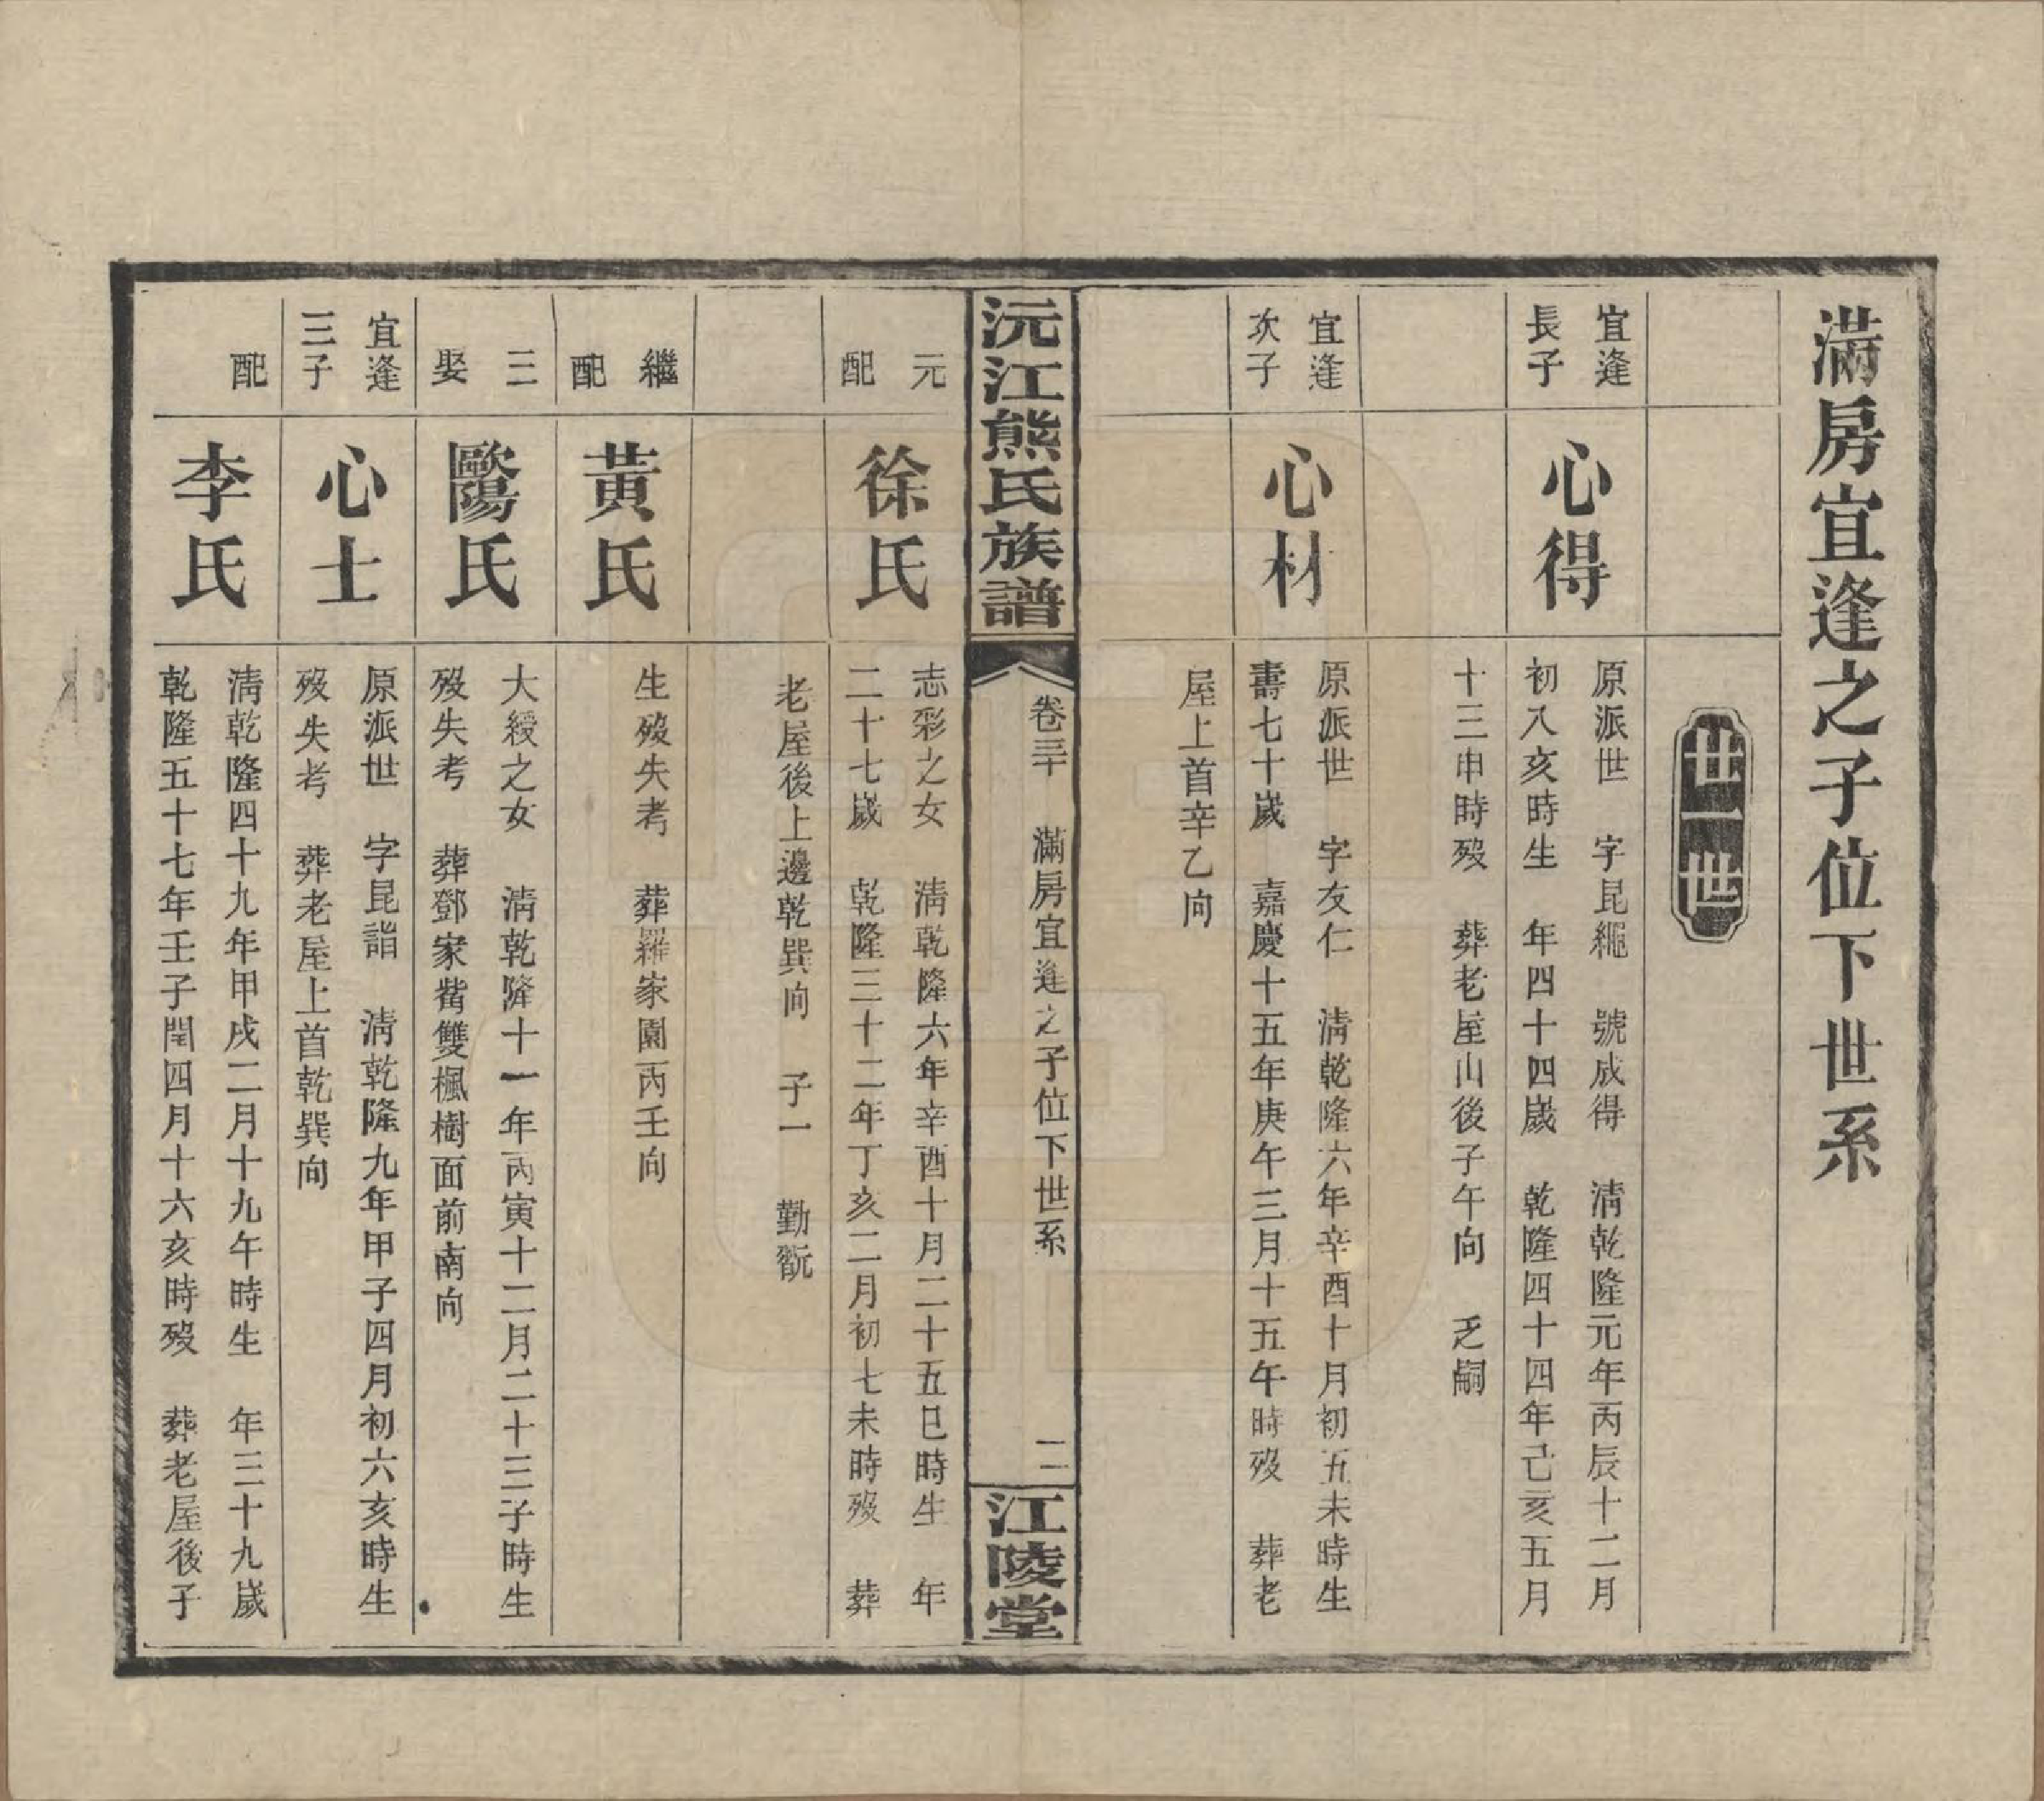 滿房宜逢之子位下世系
世一世
宜逢
長子
心得
原派世　字昆繩　號成得　清乾隆元年丙辰十二月
初八亥時生　年四十四歲　乾隆四十四年己亥五月
十三申時歿　葬老屋山後子午向　乏嗣
宜逢
次子
心材
原派世　字友仁　清乾隆六年辛酉十月初五未時生
壽七十歲　嘉慶十五年庚午三月十五午時歿　葬老
屋上首辛乙向
沅江熊氏族譜
卷三十　滿房宜逢之子位下世系
二
江陵堂
元
配
徐氏
志彩之女　清乾隆六年辛酉十月二十五巳時生　年
二十七歲　乾隆三十二年丁亥二月初七未時歿　葬
老屋後上邊乾巽向　子一　勤翫
繼
配
黃氏
生歿失考　葬羅家園丙壬向
三
娶
歐陽氏
大綬之女　清乾隆十一年丙寅十二月二十三子時生
歿失考　葬鄧家凿雙楓樹面前南向
宜逢
三子
心士
原派世　字昆諧　清乾隆九年甲子四月初六亥時生
歿失考　葬老屋上首乾巽向
配
李氏
清乾隆四十九年甲戌二月十九午時生　年三十九歲
乾隆五十七年壬子閏四月十六亥時歿　葬老屋後子